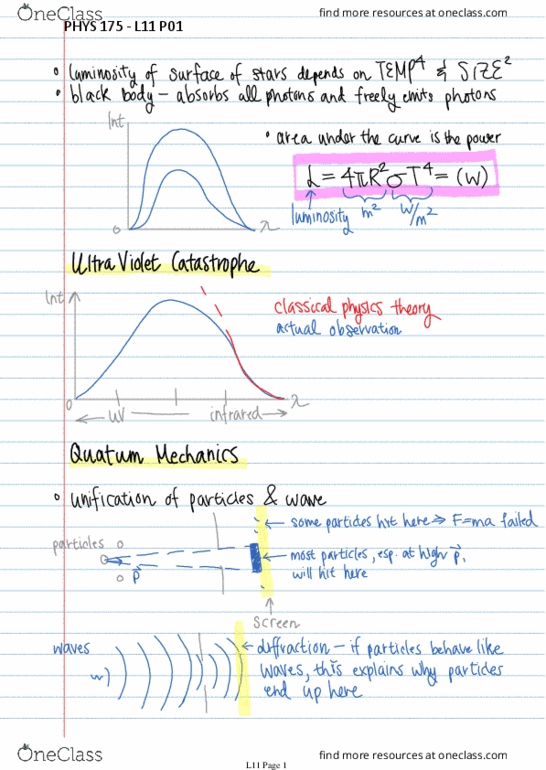 OneClass
find more resources at oneclass.com
PHYS 175 - L11 P01
luminosity of surface of stars depends on TEMP⁴ & SIZE²
black body – absorbs all photons and freely emits photons
Int
0
λ
area under the curve is the power
L = 4πR²σT⁴ = (W)
luminosity m² W/m²
Ultra Violet Catastrophe
Int
classical physics theory
actual observation
0
λ
UV
infrared
Quatum Mechanics
unification of particles & wave
some particles hit here ⇒ F=ma failed
particles
p⃗
most particles, esp. at high p⃗,
will hit here
screen
waves
diffraction – if particles behave like
waves, this explains why particles
end up here
OneClass
find more resources at oneclass.com
L11 Page 1